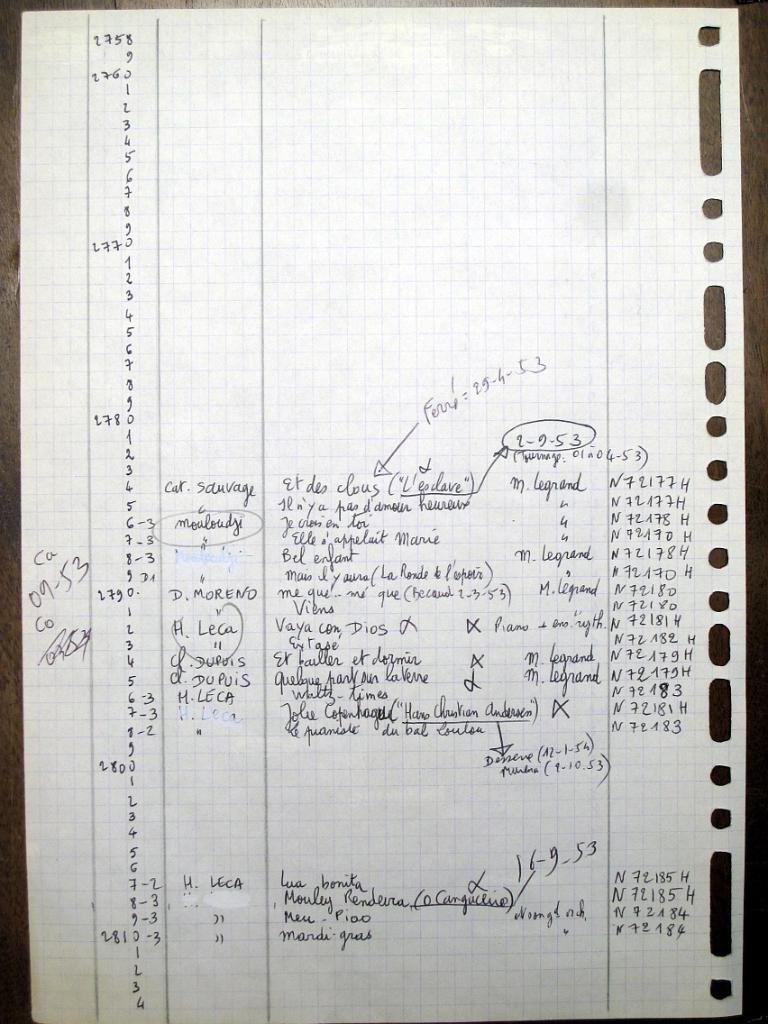 2758
9
2760
1
2
3
4
5
6
7
8
9
2770
1
2
3
4
5
6
7
8
9
2780
Ferré = 29-4-53
1
2-9-53
2
(Tournage. 01 à 04-53)
3
4 Cat. Sauvage Et des clous ("L'esclave") M. Legrand N 72177 H
5 " Il n'y a pas d'amour heureux " N 72177 H
6-3 Mouloudji Je crois en toi " N 72178 H
7-3 " Elle s'appelait Marie N 72170 H
8-3 Bel enfant M. Legrand N 72178 H
9 D1 " Mais il y aura (La Ronde de l'espoir) " N 72170 H
Ca 09-53
Co
2790. D. MORENO Me que... mé que (Becaud 2-3-53) M. Legrand N 72180
1 Viens N 72180
2 H. Leca Vaya con Dios X Piano + ens. rygth. N 72181 H
3 " Extase N 72182 H
4 Cl. DUPUIS Et bailler et dormir X M. Legrand N 72179 H
5 Cl. DUPUIS Quelque part sur la terre M. Legrand N 72179 H
6-3 H. LECA Waltz-times N 72183
7-3 H. Leca Jolie Copenhague ("Hans Christian Andersen") X N 72181 H
8-2 " Le pianiste du bal Loulou N 72183
9
2800
(12-1-54)
(9-10.53)
1
2
3
4
5
6
16-9-53
7-2 H. LECA Lua bonita N 72185 H
8-3 Mouley Rendeira (O Cangaceiro) N 72185 H
9-3 " Meu-Piao N 72184
2810-3 " Mardi-gras " N 72184
1
2
3
4